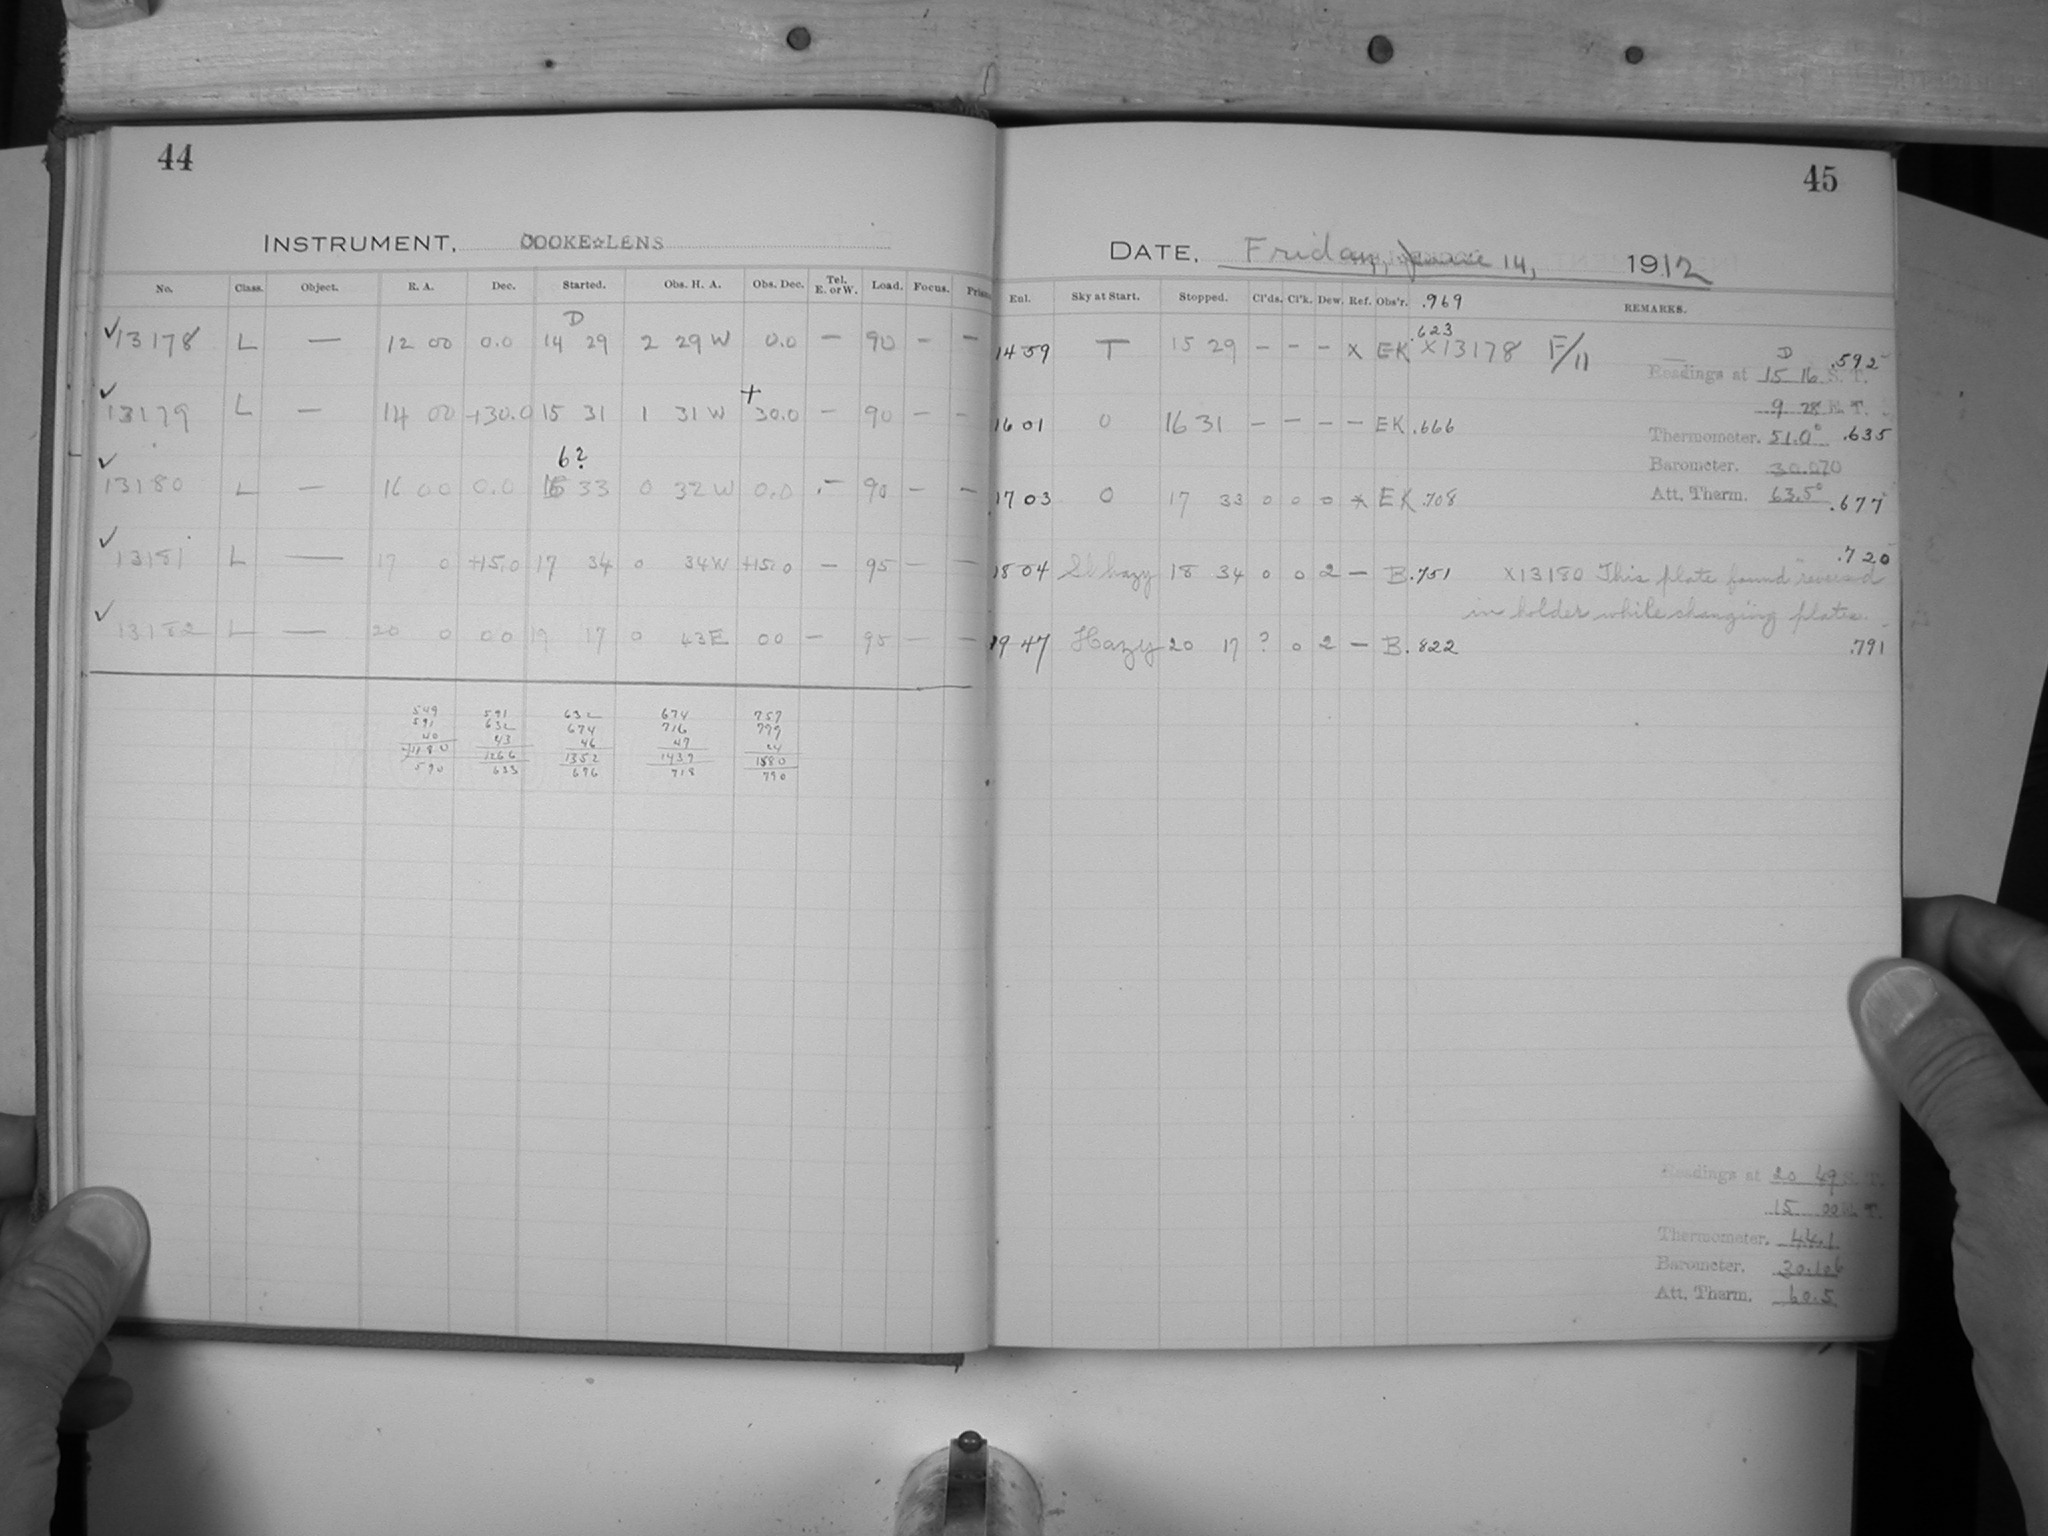 44
INSTRUMENT, COOKE☆LENS
No. Class. Object. R. A. Dec. Started. Obs. H. A. Obs. Dec. Tel. E. or W. Load. Focus. Prism
D
✓13178 L — 12 00 0.0 14 29 2 29 W 0.0 — 90 – –
✓ +
13179 L — 14 00 +30.0 15 31 1 31 W 30.0 – 90 – –
6?
✓13180 L — 16 00 0.0 33 0 32 W 0.0 – 90 – –
✓13181 L — 17 0 +15.0 17 34 0 34W +15.0 – 95 – –
✓13182 L — 20 0 00 19 17 0 43E 00 – 95 – –
549 591 632 674 757
591 632 674 716 799
40 43 46 47 24
1180 1266 1352 1437 1580
590 633 676 718 790
45
DATE, Friday, June 14, 1912
Enl. Sky at Start. Stopped. Cl'ds. Cl'k. Dew. Ref. Obs'r. .969 REMARKS.
.623
14 59 T 15 29 – – – x EK x13178 F/11
D .592
Readings at 15 16 S. T.
9 28 E. T.
16 01 0 16 31 – – – – EK .666
Thermometer. 51.0° .635
Barometer. 30.070
Att. Therm. 63.5° .677
17 03 0 17 33 0 0 0 x EK .708
.720
18 04 Sl hazy 18 34 0 0 2 – B .751 x13180 This plate found reversed
in holder while changing plates.
19 47 Hazy 20 17 ? 0 2 – B .822 .791
Readings at 20 49 S. T.
15 00 W. T.
Thermometer. 44.1
Barometer. 30.106
Att. Therm. 60.5